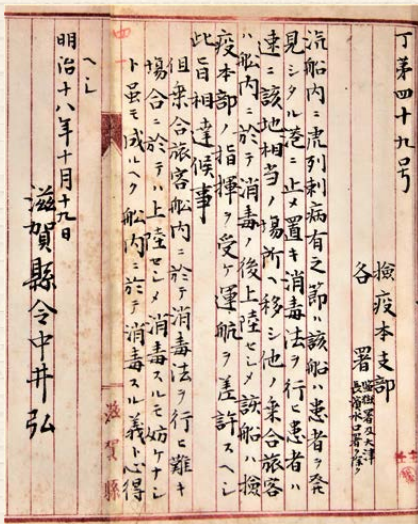 丁第四十九号
檢疫本支部
各署 監獄署及大津
長濱水口署ヲ除ク
汽船内ニ虎列剌病有之節ハ該船ハ患者ヲ発
見シタル港ニ止メ置キ消毒法ヲ行ヒ患者ハ
速ニ該地相当ノ場所ヘ移シ他ノ乗合旅客
ハ船内ニ於テ消毒ノ後上陸セシメ該船ハ檢
疫本部ノ指揮ヲ受ケ運航ヲ差許スヘシ
此旨相達候事
但乗合旅客船内ニ於テ消毒法ヲ行ヒ難キ
場合ニ於テハ上陸セシメ消毒スルモ妨ケナシ
ト虽モ成ルヘク船内ニ於テ消毒スル義ト心得
ヘシ
明治十八年十月十九日
滋賀縣令中井弘
滋賀縣